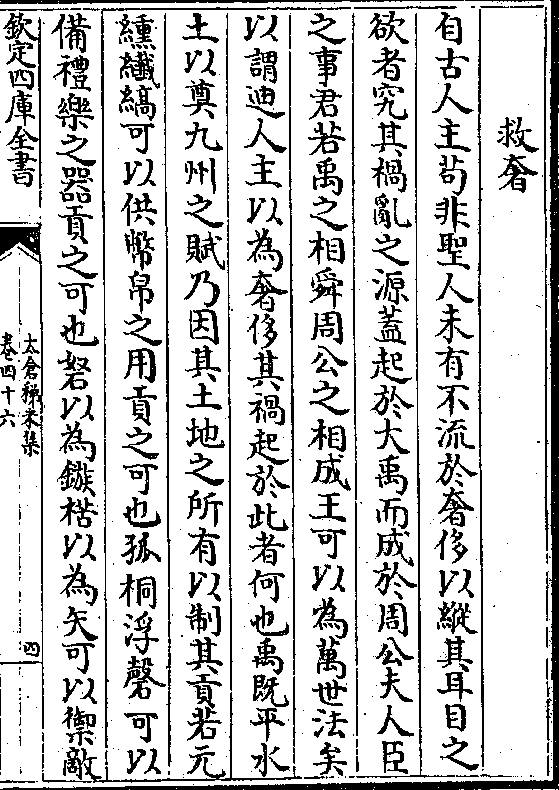 救奢
自古人主茍非聖人未有不流於奢侈以縱其耳目之
欲者究其禍亂之源蓋起於大禹而成於周公夫人臣
之事君若禹之相舜周公之相成王可以為萬世法矣
以謂廸人主以為奢侈其禍起於此者何也禹既平水
土以奠九州之賦乃因其土地之所有以制其貢若元
纁纖縞可以供幣帛之用貢之可也孤桐浮磬可以
備禮樂之器貢之可也砮以為鏃楛以為矢可以禦敵
欽定四庫全書
太倉稊米集
卷四十六
四